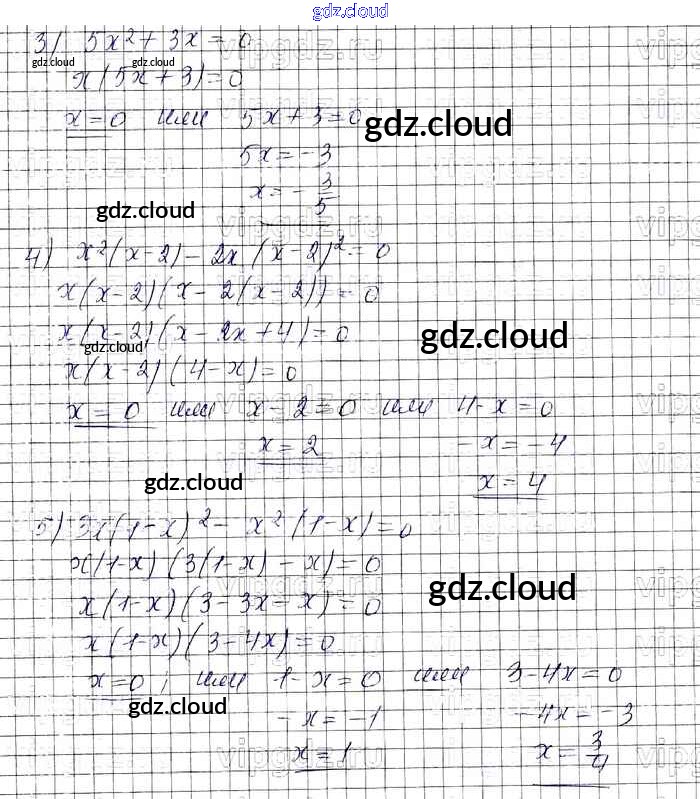 gdz.cloud
3) 5x² + 3x = 0
gdz.cloud gdz.cloud
x(5x + 3) = 0
x = 0 или 5x + 3 = 0
gdz.cloud
5x = -3
x = - 3/5
gdz.cloud
4) x²(x - 2) - 2x (x - 2)² = 0
x(x - 2)(x - 2(x - 2)) = 0
x(x - 2)(x - 2x + 4) = 0
gdz.cloud
gdz.cloud
x(x - 2)(4 - x) = 0
x = 0 или x - 2 = 0 или 4 - x = 0
x = 2 -x = -4
gdz.cloud
x = 4
5) 3x(1 - x)² - x²(1 - x) = 0
x(1 - x)(3(1 - x) - x) = 0
gdz.cloud
x(1 - x)(3 - 3x - x) = 0
x(1 - x)(3 - 4x) = 0
x = 0; или 1 - x = 0 или 3 - 4x = 0
gdz.cloud
-x = -1 -4x = -3
x = 1 x = 3/4